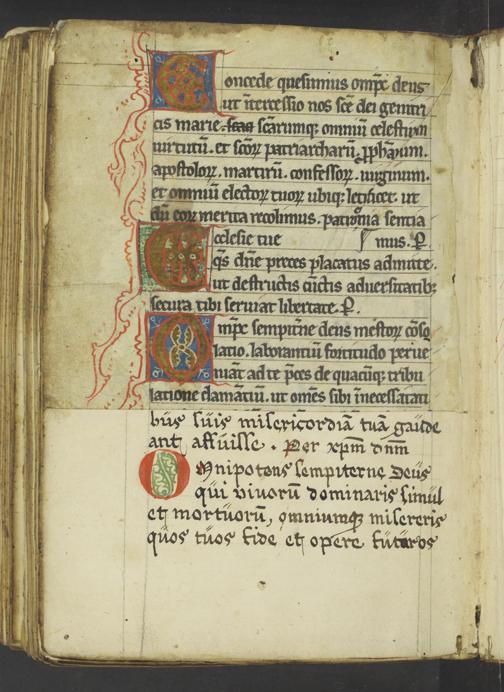 Concede quesumus omp̄c deus
ut ītercessio nos scē dei genitri
cis marie. scāꝝ scārumq; omniū celestium
uirtutū. et scōꝝ patriarcharū. ꝓphaꝝum.
apostoloꝝ. martirū. confessoꝝ. uirginum.
et omniū electoꝝ tuoꝝ ubiq; letificet. ut
dū eoꝝ merita recolimus. patrocinia sentia
Ecclesie tue mus. P̄
qs dn̄e preces placatus admitte.
ut destructis cūctis aduersitatib;
secura tibi seruiat libertate. P̄.
Omp̄c sempit̄ne deus mestoꝝ cōso
latio. laborantiū fortitudo perue
niāt ad te p̄ces de quacūq; tribu
latione clamātiū. ut om̄es sibi ī necessitati
bus suis misericordiā tuā gaude
ant affuisse. Per xp̄m dn̄m
Omnipotens sempiterne Deus
qui vivorū dominaris simul
et mortuorū, omniumq; misereris
quos tuos fide et opere futuros